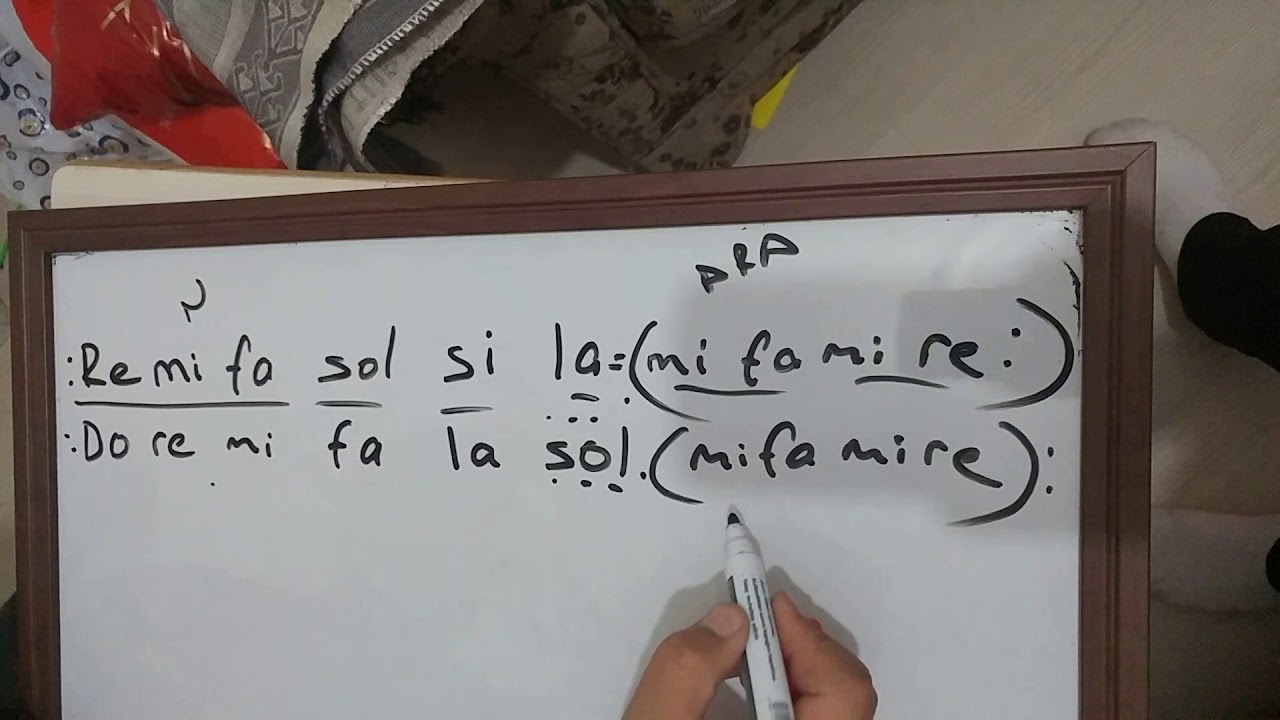 ARA
:Re mi fa sol si la=(mi fa mi re:)
:Do re mi fa la sol.(mi fa mi re):